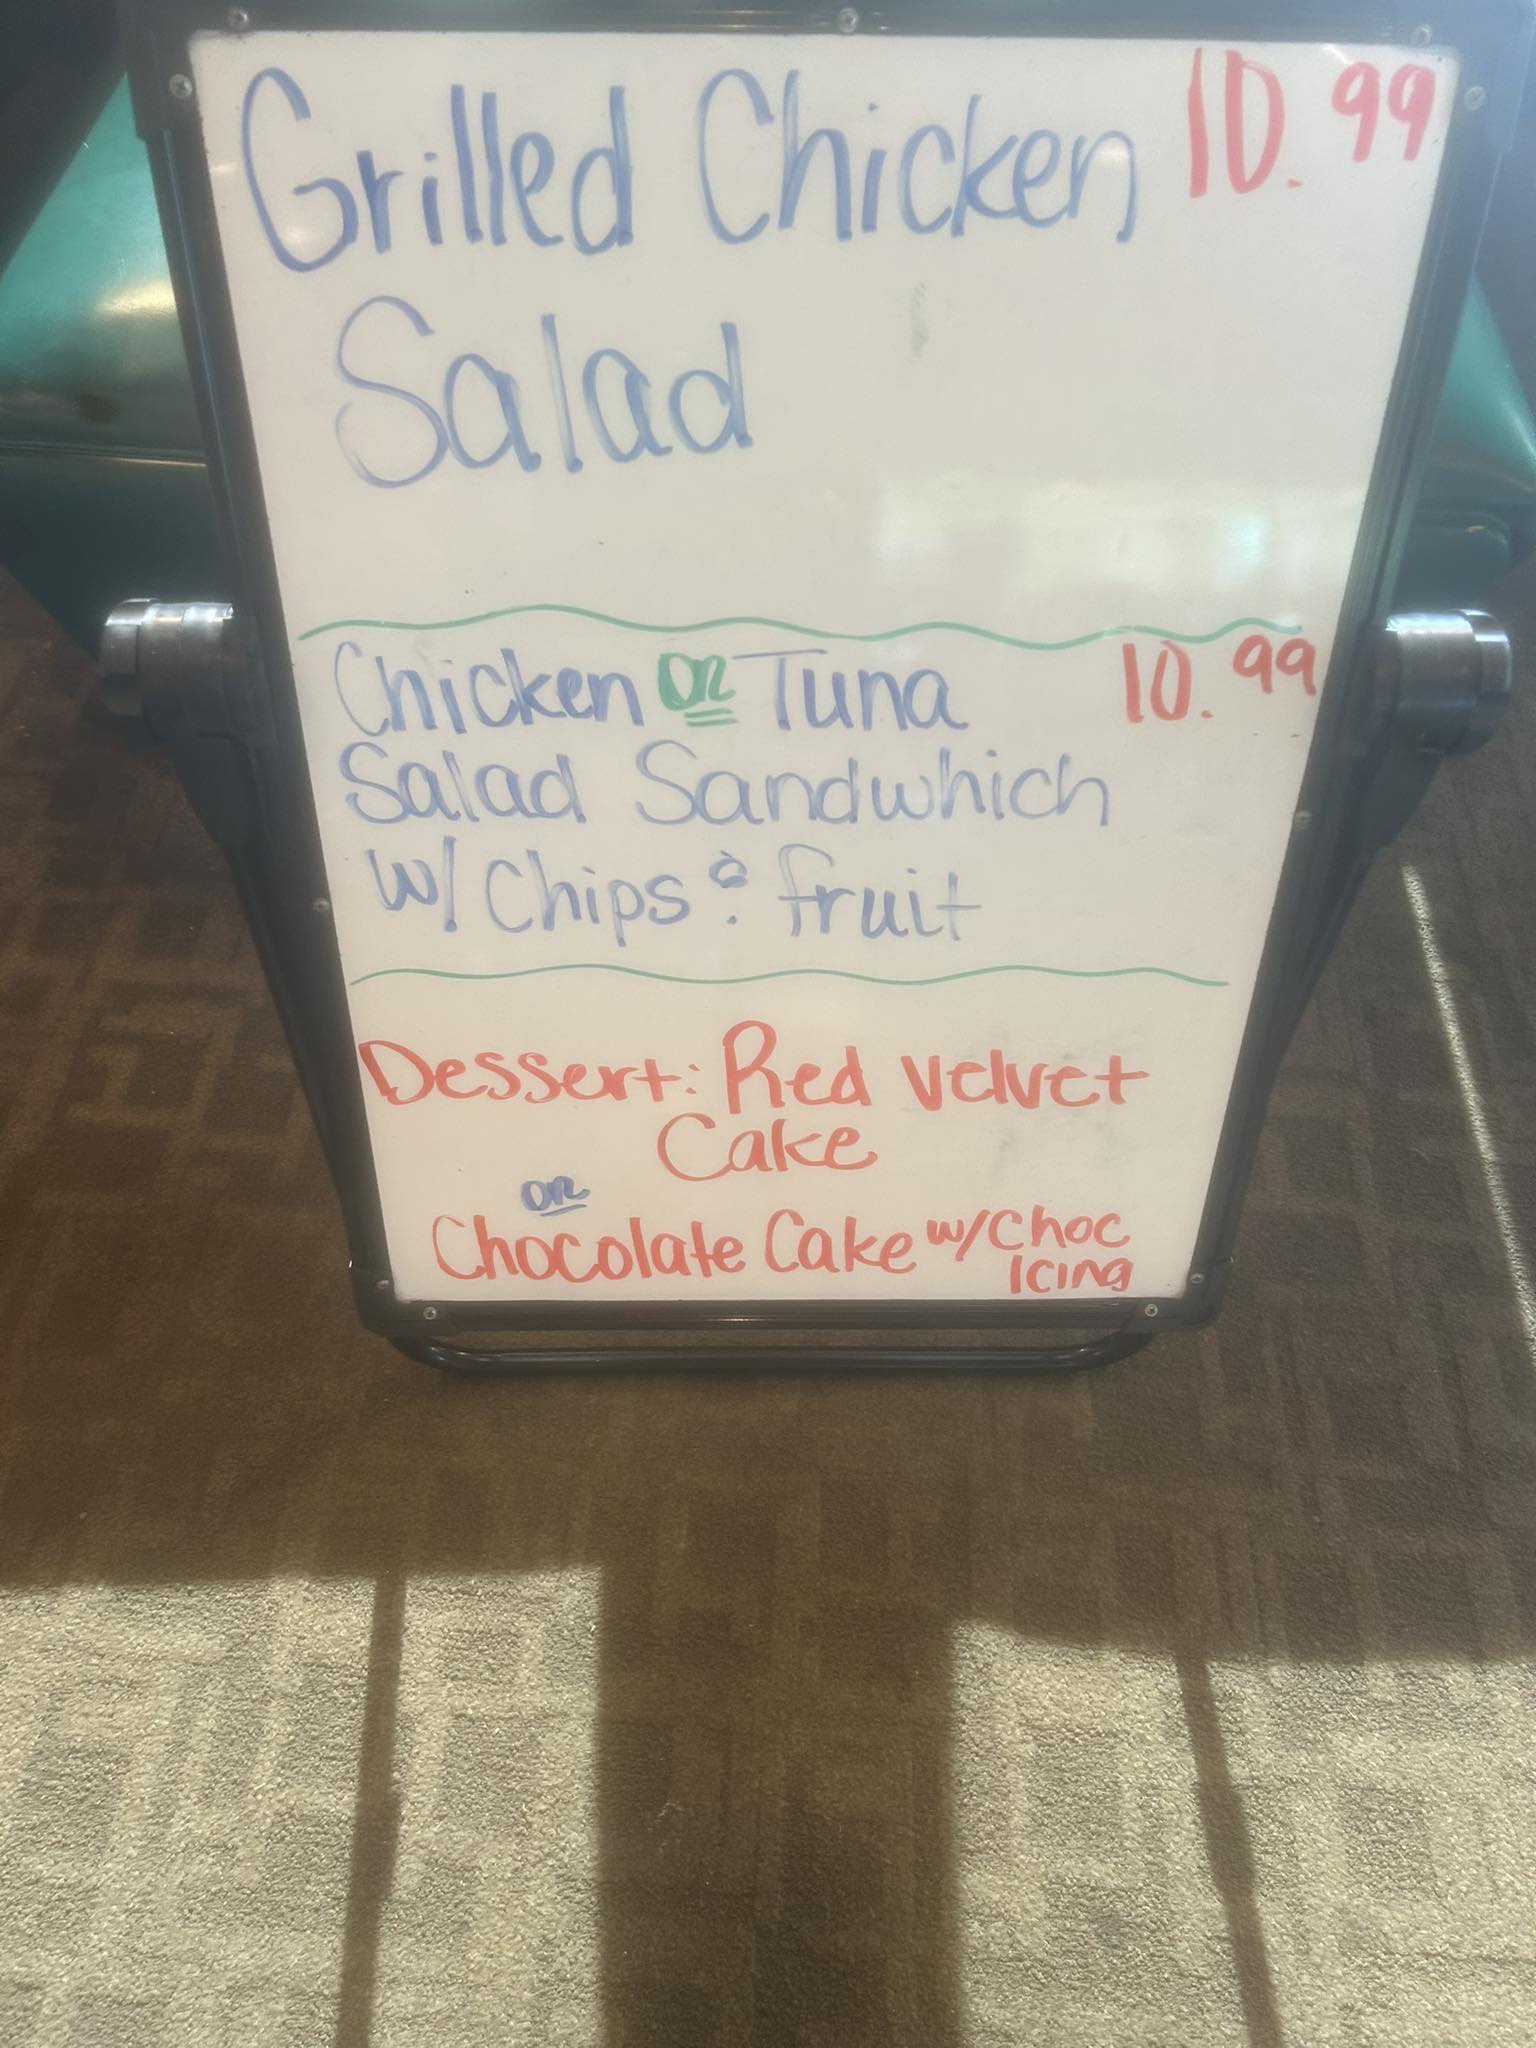 Grilled Chicken 10.99
Salad
Chicken or Tuna 10.99
Salad Sandwhich
w/ Chips & fruit
Dessert: Red Velvet
Cake
or
Chocolate Cake w/ Choc
Icing